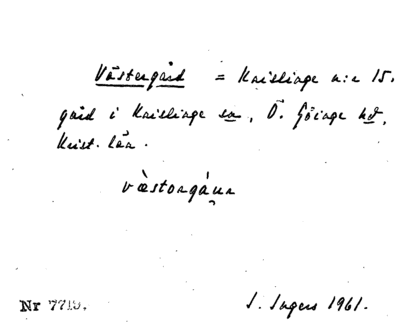 Västergård = Knislinge n:r 15.
gård i Knislinge sn, Ö. Göinge hd,
Krist. län.
væ̀stərgạ́ɳr
Nr 7719.
I. Ingers 1961.